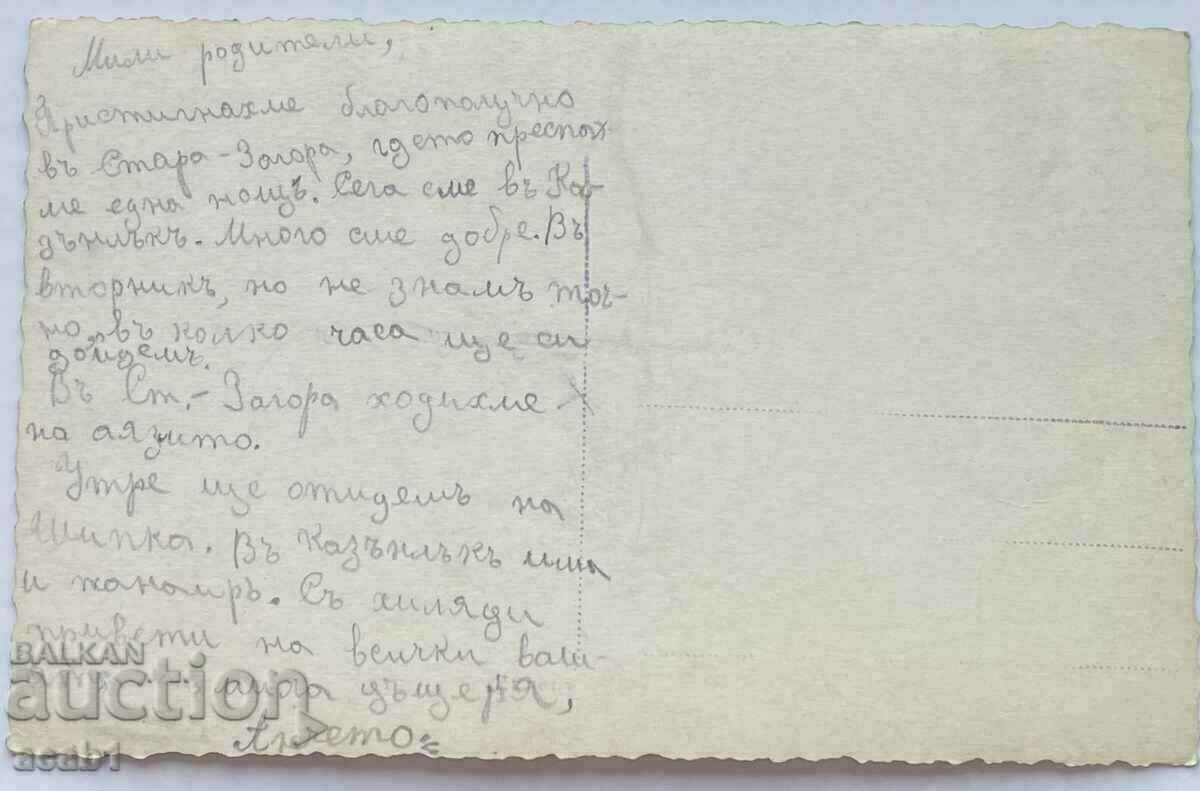 Мили родители,
Пристигнахме благополучно
въ Стара-Загора, гдето преспах-
ме една нощъ. Сега сме въ Ка-
зънлъкъ. Много сме добре. Въ
вторникъ, но не знамъ точ-
но, въ колко часа ще си
дойдемъ.
Въ Ст.-Загора ходихме
на аязмото.
Утре ще отидемъ на
Шипка. Въ Казънлъкъ има
и жанаиръ. Съ хиляди
привети на всички ваш-
дъщеря,
BALKAN
auction
acab1